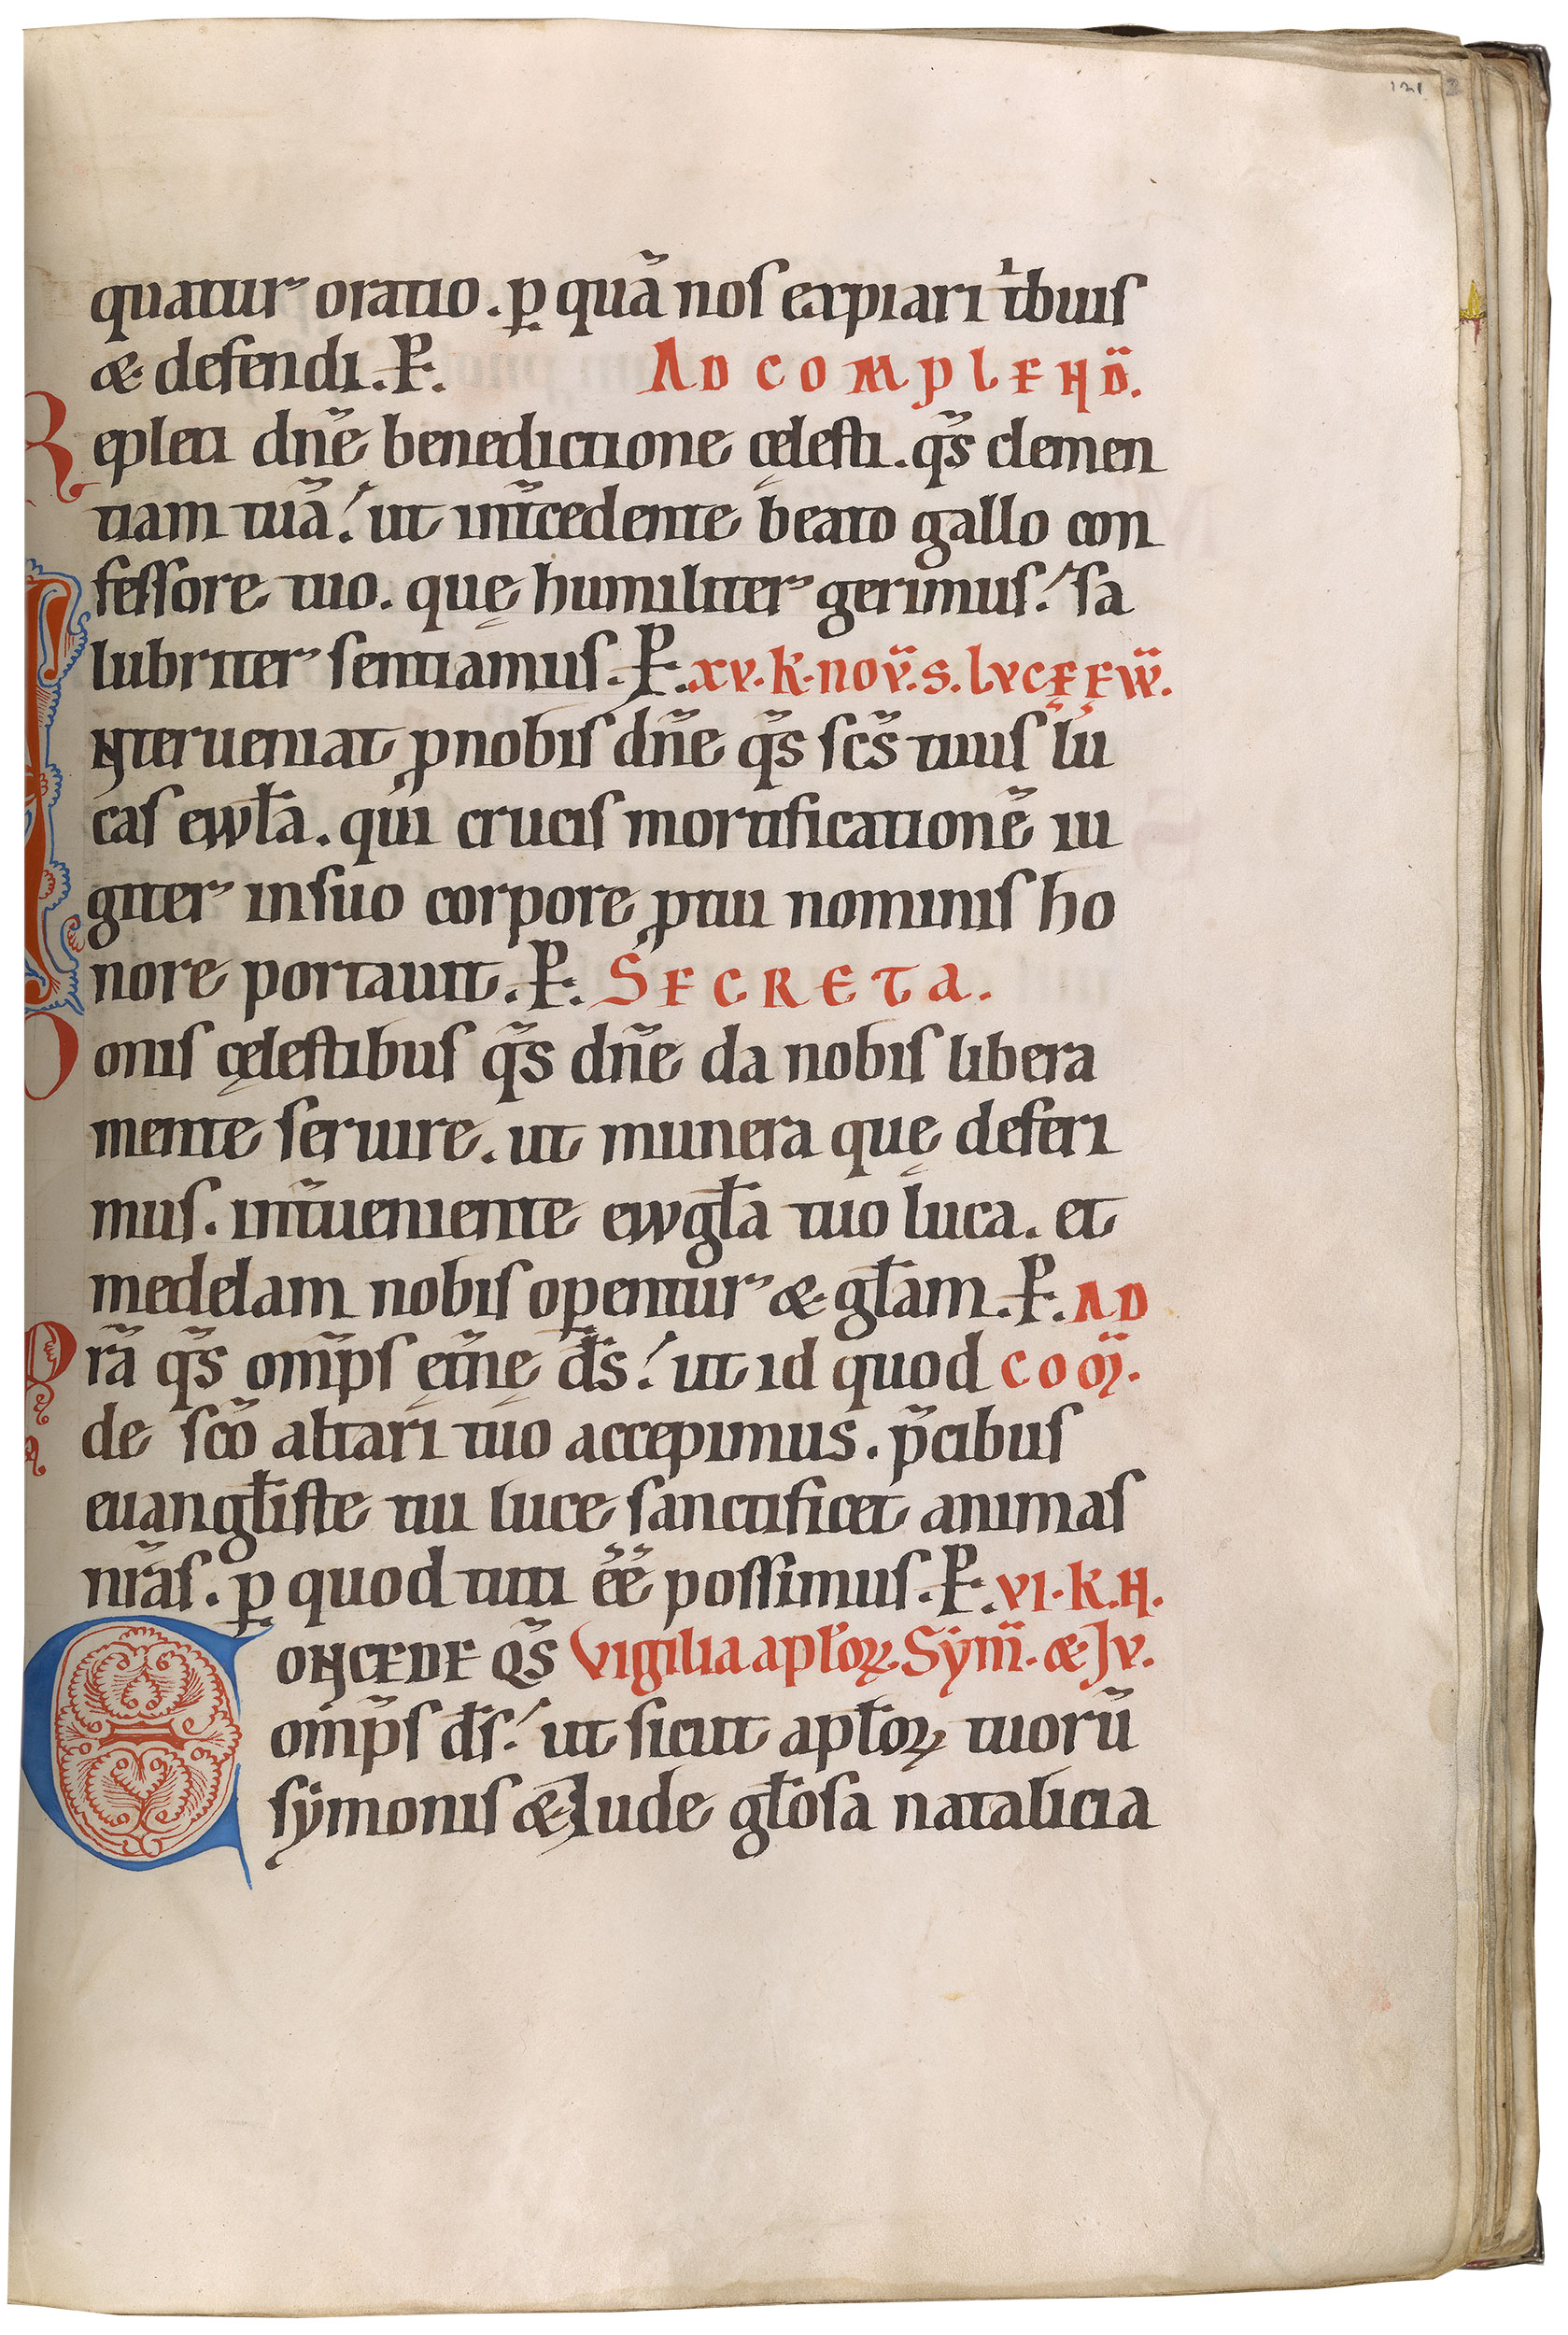 121
quatur oratio. ꝑ quā nos expiari tͥbuis
& defendi. P̱. AD COMPLEND̄.
Repleti dn̄e benedictione cęlesti. q̄s clemen
tiam tuā! ut int̄cedente beato gallo con
fessore tuo. quę humiliter gerimus! sa
lubriter sentiamus. P̱. XV. K. NOV̄. S. LVCĘ EW̄.
INterueniat ꝓnobis dn̄e q̄s sc̄s tuus lu
cas ewl̄a. qui crucis mortificationē iu
giter insuo corpore ꝓtui nominis ho
nore portauit. P̱. SECRETA.
Donis cęlestibus q̄s dn̄e da nobis libera
mente seruire. ut munera quę deferi
mus. int̄ueniente ewgl̄a tuo luca. et
medelam nobis oꝑentur & gl̄am. P̱. AD
Prā q̄s om̄ps etn̄ę d̄s! ut id quod COM̄.
de sc̄o altari tuo accepimus. p̄cibus
euangl̄iste tui luce sanctificet animas
nr̄as. ꝑ quod tuti ēē possimus. P̱. VI. K. N.
CONCEDE Q̄S Vigilia apl̄oꝝ. Sym̄. & Jv.
om̄ps d̄s! ut sicut apl̄oꝝ tuorū
sẏmonis & Iude gl̄osa natalicia